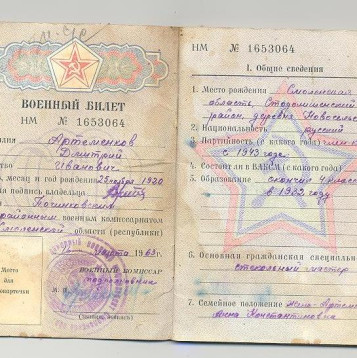 ВОЕННЫЙ БИЛЕТ
НМ № 1653064
Артеменков
Дмитрий
Иванович
месяц и год рождения 25 1920
подпись владельца
Починковским
районным военным комиссариатом
Смоленской области (республики)
марта 1963 г.
ВОЕННЫЙ КОМИССАР
подполковник
Место
для
карточки
М. П.
НМ № 1653064
I. Общие сведения
1. Место рождения Смоленская
область,
район, деревня
2. Национальность русский
3. Партийность (с какого года) член
с 1943 года
4. Состоял ли в ВЛКСМ (с какого года)
5. Образование окончил 4 класса
в 1932 году
6. Основная гражданская специальность
стекольный мастер
7. Семейное положение жена
Анна Константиновна